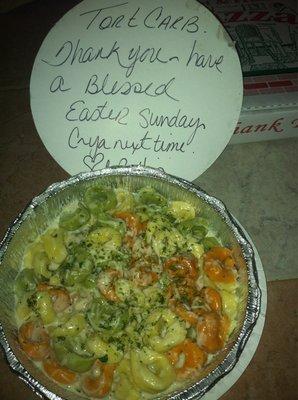 Tort CARB.
Thank you - have
a Blessed
Easter Sunday
Cya next time.
Pizza
Thank